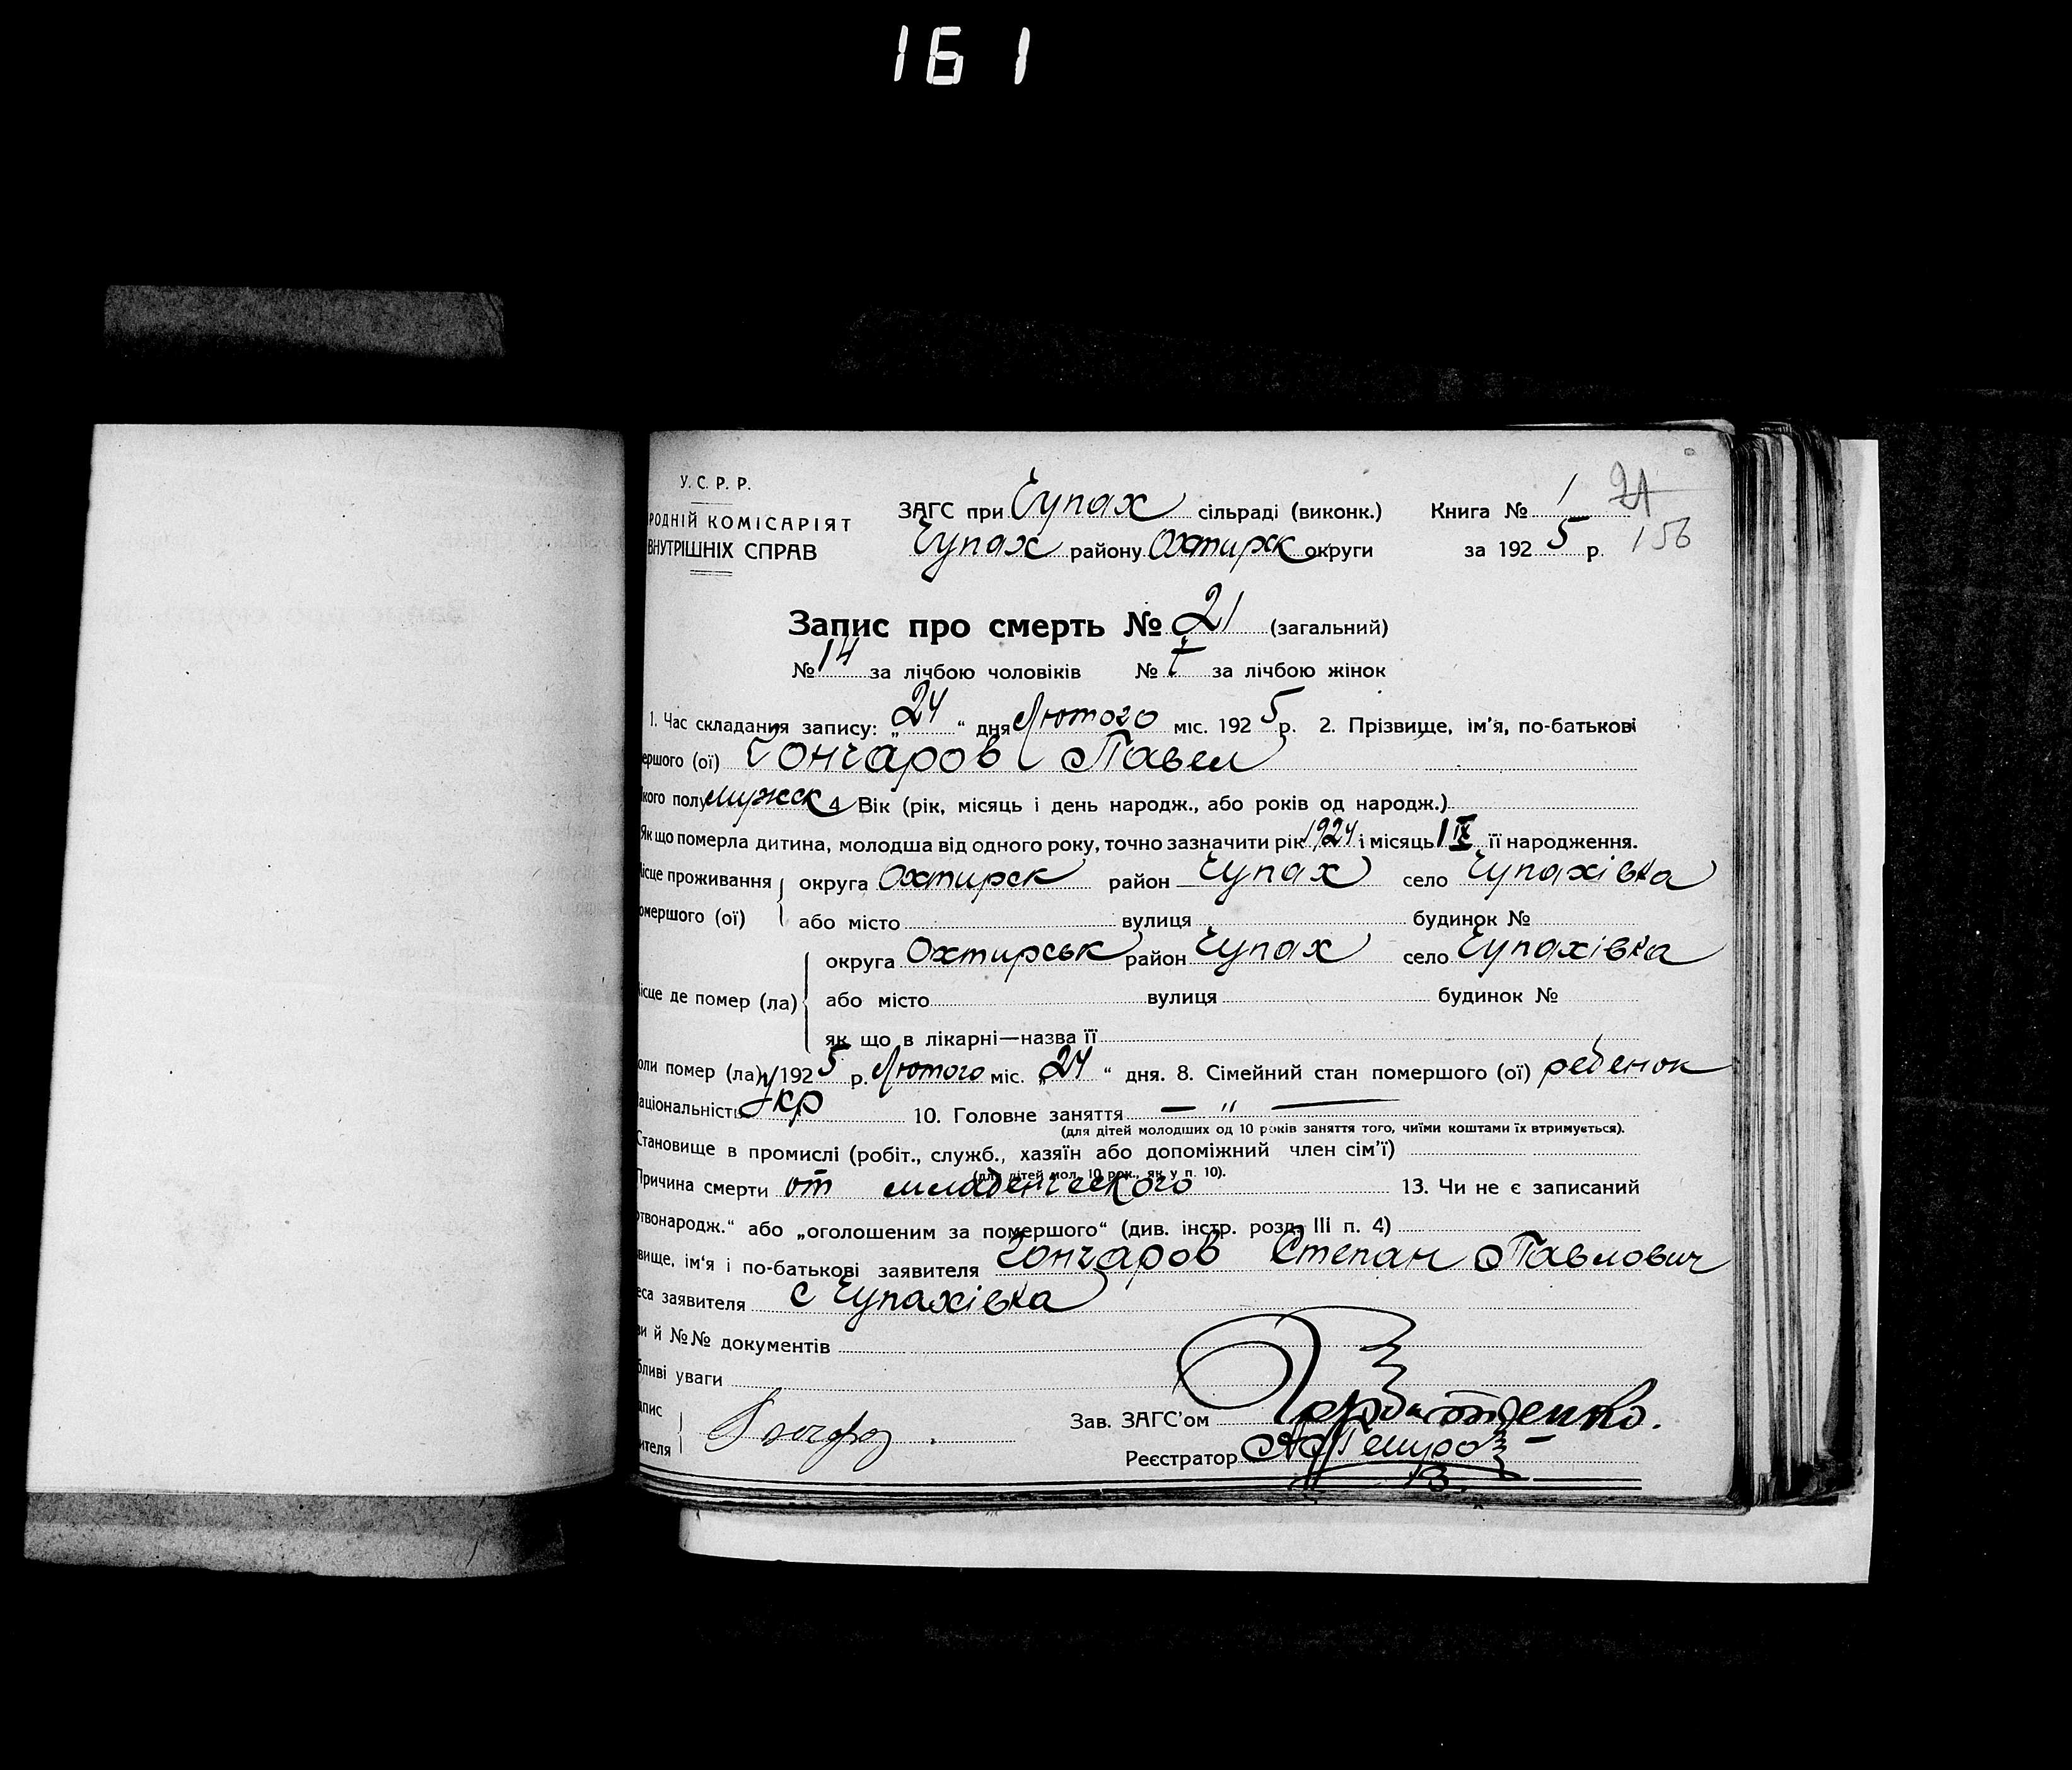 161
У. С. Р. Р.
РОДНІЙ КОМІСАРІЯТ
ВНУТРІШНІХ СПРАВ
ЗАГС при Чупах сільраді (виконк.) Книга № 1 21
Чупах району Охтирск округи за 1925 р. 156
Запис про смерть № 21 (загальний)
№ 14 за лічбою чоловіків № 7 за лічбою жінок
1. Час складання запису: „24“ дня Лютого міс. 1925 р. 2. Прізвище, ім'я, по-батькові
ершого (ої) Гончаров Павел
кого полу мужск 4 Вік (рік, місяць і день народж., або років од народж.)
Як що померла дитина, молодша від одного року, точно зазначити рік 1924 і місяць 1 IX її народження.
ісце проживання округа Охтирск район Чупах село Чупахівка
омершого (ої) або місто вулиця будинок №
округа Охтирськ район Чупах село Чупахівка
ісце де помер (ла) або місто вулиця будинок №
як що в лікарні—назва її
оли помер (ла) 1925 р. Лютого міс. „24“ дня. 8. Сімейний стан помершого (ої) ребенок
аціональність Укр 10. Головне заняття — " —
(для дітей молодших од 10 років заняття того, чиїми коштами їх втримується).
Становище в промислі (робіт., служб., хазяїн або допоміжний член сім'ї)
(для дітей мол. 10 рок., як у п. 10).
Причина смерти от младенческого 13. Чи не є записаний
ртвонародж.“ або „оголошеним за помершого“ (див. інстр. розд. III п. 4)
вище, ім'я і по-батькові заявителя Гончаров Степан Павлович
еса заявителя с Чупахівка
ви й №№ документів
бливі уваги
дпис
ителя
Зав. ЗАГС'ом
Реєстратор